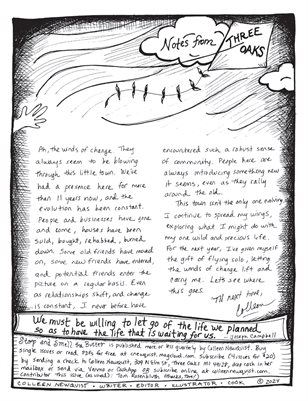 Notes from
THREE
OAKS
Ah, the winds of change. They
always seem to be blowing
through this little town. We've
had a presence here for more
than 11 years now, and the
evolution has been constant.
People and businesses have gone
and come, houses have been
sold, bought, rehabbed, burned
down. Some old friends have moved
on, some new friends have entered,
and potential friends enter the
picture on a regular basis. Even
as relationships shift, and change
is constant, I never before have
encountered such a robust sense
of community. People here are
always introducing something new
it seems, even as they rally
around the old.
This town isn't the only one making
I continue to spread my wings,
exploring what I might do with
my one wild and precious life.
For the next year, I've given myself
the gift of flying solo, letting
the winds of change lift and
carry me. Let's see where
this goes.
'Til next time,
Colleen
We must be willing to let go of the life we planned
so as to have the life that is waiting for us. - Joseph Campbell
Stop and Smell the Butter is published more or less quarterly by Colleen Newquist. Buy
single issues or read PDFs for free at cnewquist.magcloud.com. Subscribe (4 issues for $20)
by sending a check to Colleen Newquist, Three Oaks MI 49128, drop cash in her
mailbox or send via Venmo or CashApp. Or subscribe online at colleennewquist.com.
Contributor this issue (as usual): Tom Rosenbluth. Thanks, Tom!
COLLEEN NEWQUIST • WRITER • EDITOR • ILLUSTRATOR • COOK © 2024